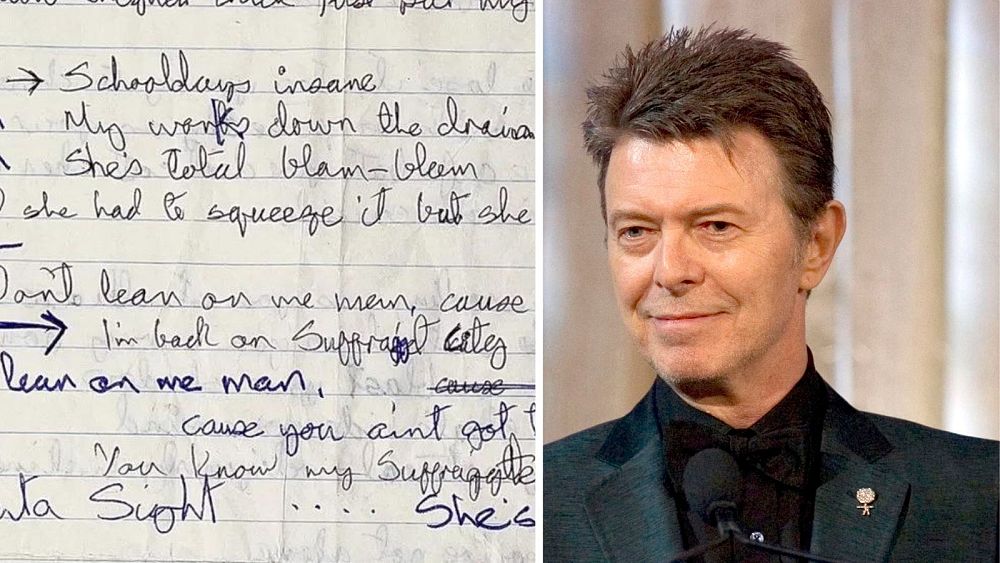 chick just put my
→ Schooldays insane
My works down the drain
She's total blam-blam
she had to squeeze it but she
Don't lean on me man, cause
→ I'm back on Suffragit City
lean on me man, cause
cause you aint got
You know my Suffragette
Sight ..... She's